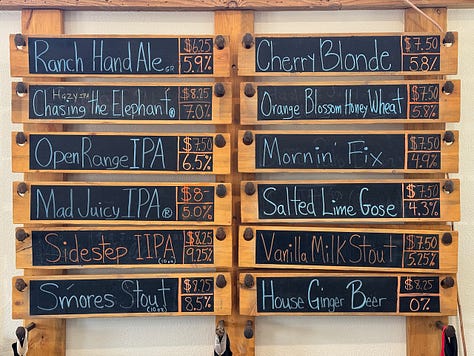 Ranch Hand Ale GR $6.25 5.9%
Hazy IPA
Chasing the Elephant $8.25 7.0%
Open Range IPA $7.50 6.5%
Mad Juicy IPA ® $8- 5.0%
Sidestep IIPA (10oz) $8.25 9.25%
S'mores Stout (10oz) $9.25 8.5%
Cherry Blonde $7.50 5.8%
Orange Blossom Honey Wheat $7.50 5.8%
Mornin' Fix $7.50 4.9%
Salted Lime Gose $7.50 4.3%
Vanilla Milk Stout $7.50 5.25%
House Ginger Beer $8.25 0%